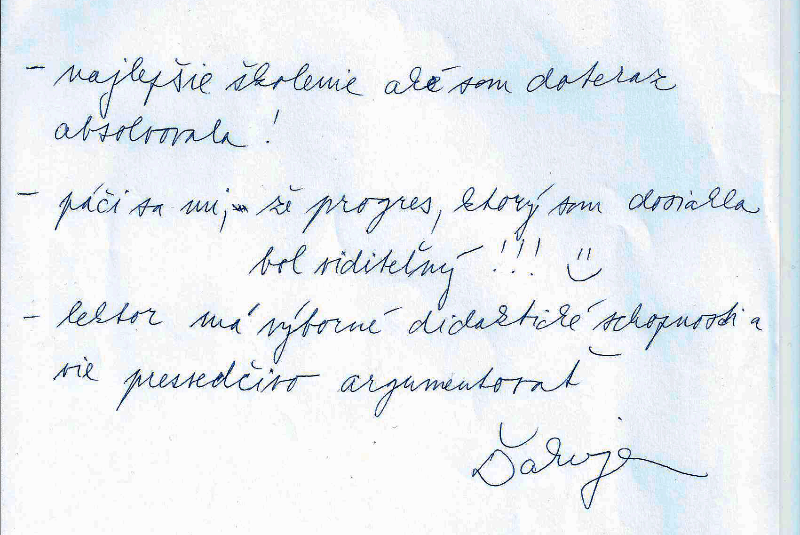 - najlepšie školenie aké som doteraz
absolvovala!
- páči sa mi, že progres, ktorý som dosiahla
bol viditeľný!!! :)
- lektor má výborné didaktické schopnosti a
vie presvedčivo argumentovať
Ďakuje